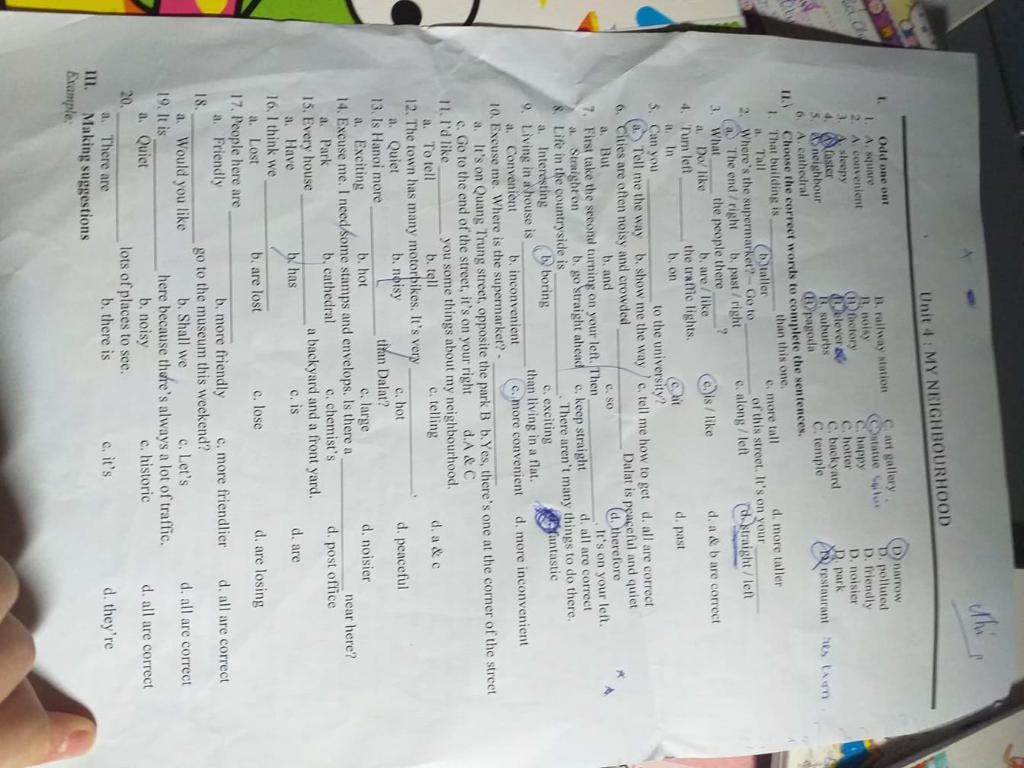 Unit 4 : MY NEIGHBOURHOOD
I. Odd one out
1. A. square B. railway station C. art gallery . D. narrow
2. A. convenient B. noisy C. statue D. poluted
3. A. sleepy B. historic C. happy D. friendly
4. A. faster B. clever C. hotter D. noisier
5. A. neighbour B. suburbs C. backyard D. park
6. A. cathedral B. pagoda C. temple D. restaurant
II. Choose the correct words to complete the sentences.
1. That building is ________ than this one.
a. Tall b. taller c. more tall d. more taller
2. Where's the supermarket? – Go to ________ of this street. It's on your ________
a. The end / right b. past / right c. along / left d. straight / left
3. What ________ the people there ________ ?
a. Do/ like b. are / like c. is / like d. a & b are correct
4. Turn left ________ the traffic lights.
a. In b. on c. at d. past
5. Can you ________ to the university?
a. Tell me the way b. show me the way c. tell me how to get d. all are correct
6. Cities are often noisy and crowded ________ Dalat is peaceful and quiet
a. But b. and c. so d. therefore
7. First take the second turning on your left. Then ________ . It's on your left.
a. Straight on b. go straight ahead c. keep straight d. all are correct
8. Life in the countryside is ________ . There aren't many things to do there.
a. Interesting b. boring c. exciting d. fantastic
9. Living in a house is ________ than living in a flat.
a. Convenient b. inconvenient c. more convenient d. more inconvenient
10. Excuse me. Where is the supermarket? - ________
a. It's on Quang Trung street, opposite the park B b.Yes, there's one at the corner of the street
c. Go to the end of the street, it's on your right d.A & C
11. I'd like ________ you some things about my neighbourhood.
a. To tell b. tell c. telling d. a & c
12. The town has many motorbikes. It's very ________ .
a. Quiet b. noisy c. hot d. peaceful
13. Is Hanoi more ________ than Dalat?
a. Exciting b. hot c. large d. noisier
14. Excuse me. I need some stamps and envelops. Is there a ________ near here?
a. Park b. cathedral c. chemist's d. post office
15. Every house ________ a backyard and a front yard.
a. Have b. has c. is d. are
16. I think we ________
a. Lost b. are lost c. lose d. are losing
17. People here are ________
a. Friendly b. more friendly c. more friendlier d. all are correct
18. ________ go to the museum this weekend?
a. Would you like b. Shall we c. Let's d. all are correct
19. It is ________ here because there's always a lot of traffic.
a. Quiet b. noisy c. historic d. all are correct
20. ________ lots of places to see.
a. There are b. there is c. it's d. they're
III. Making suggestions
Example: